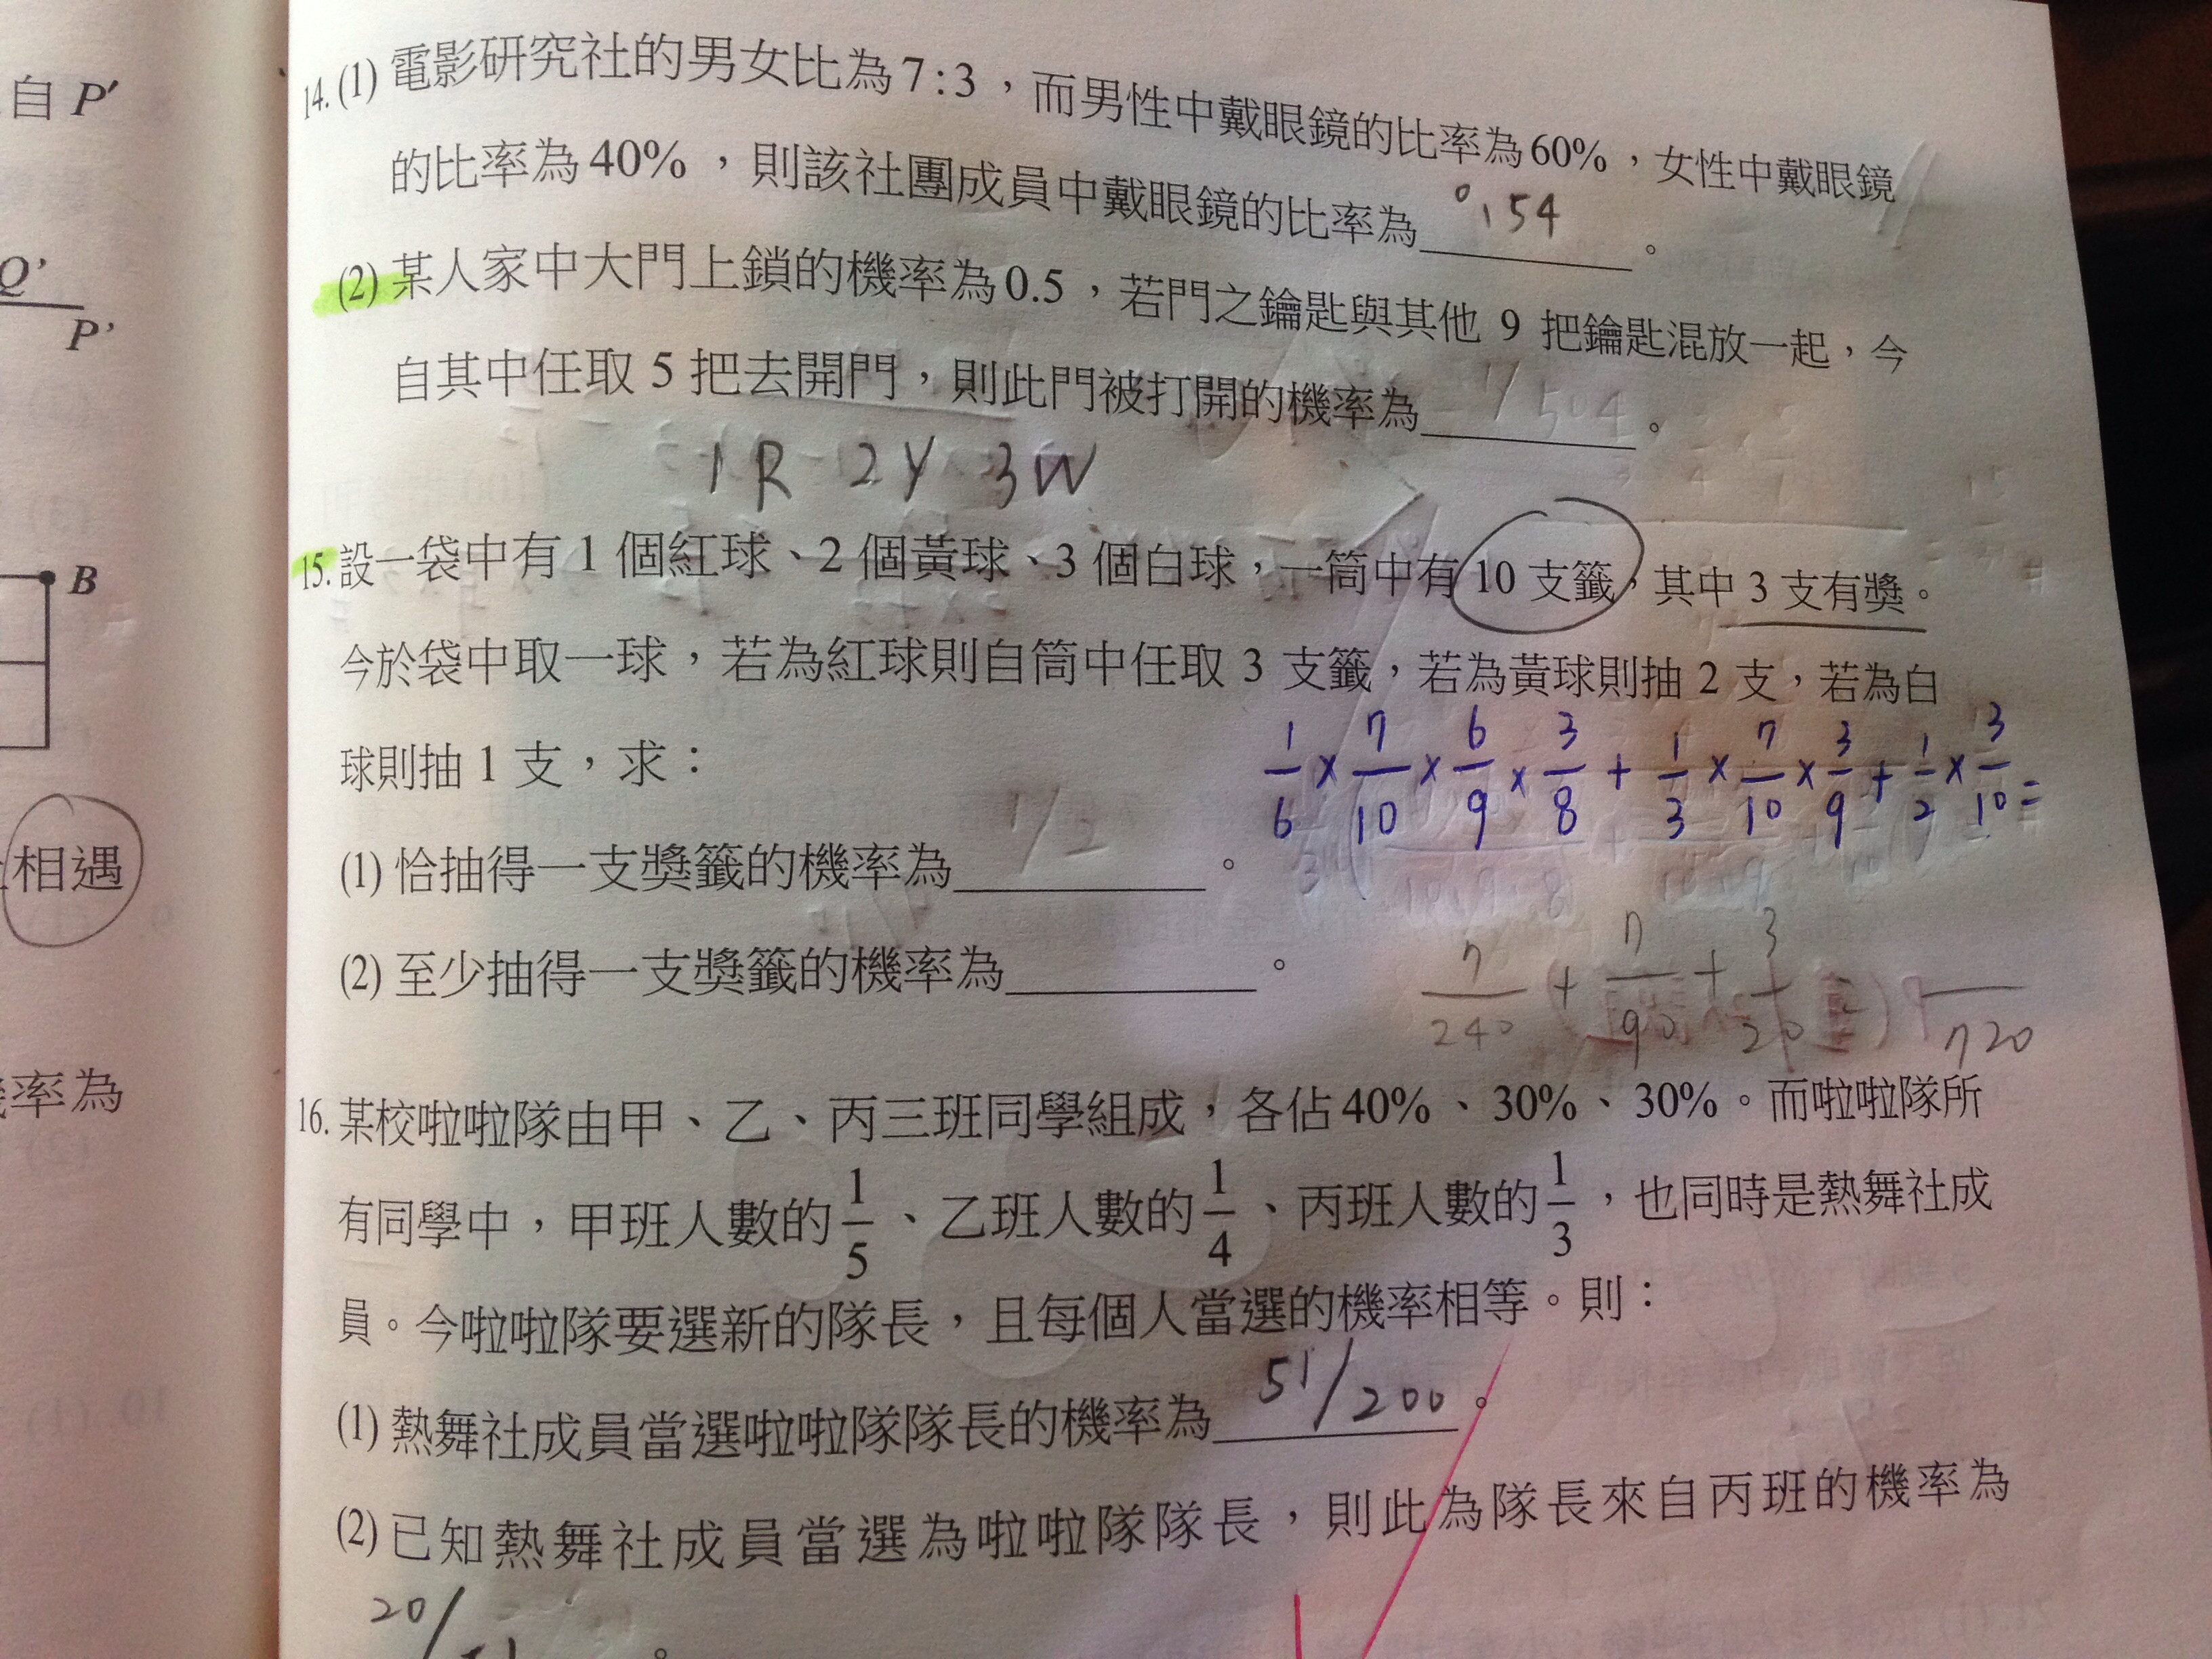 自 P′
Q’
P’
B
相遇
率為
14. (1) 電影研究社的男女比為 7 : 3 ，而男性中戴眼鏡的比率為 60% ，女性中戴眼鏡
的比率為 40% ，則該社團成員中戴眼鏡的比率為 0.54 。
(2) 某人家中大門上鎖的機率為 0.5 ，若門之鑰匙與其他 9 把鑰匙混放一起，今
自其中任取 5 把去開門，則此門被打開的機率為 。
1R 2Y 3W
15. 設一袋中有 1 個紅球、2 個黃球、3 個白球，一筒中有 10 支籤，其中 3 支有獎。
今於袋中取一球，若為紅球則自筒中任取 3 支籤，若為黃球則抽 2 支，若為白
球則抽 1 支，求：
1/6 × 7/10 × 6/9 × 3/8 + 1/3 × 7/10 × 3/9 + 1/2 × 3/10 =
(1) 恰抽得一支獎籤的機率為 。
(2) 至少抽得一支獎籤的機率為 。
7/240 + 7/90 + 3/20
720
16. 某校啦啦隊由甲、乙、丙三班同學組成，各佔 40% 、30% 、30% 。而啦啦隊所
有同學中，甲班人數的 1/5 、乙班人數的 1/4 、丙班人數的 1/3 ，也同時是熱舞社成
員。今啦啦隊要選新的隊長，且每個人當選的機率相等。則：
(1) 熱舞社成員當選啦啦隊隊長的機率為 51/200 。
(2) 已知熱舞社成員當選為啦啦隊隊長，則此為隊長來自丙班的機率為
20/ 。